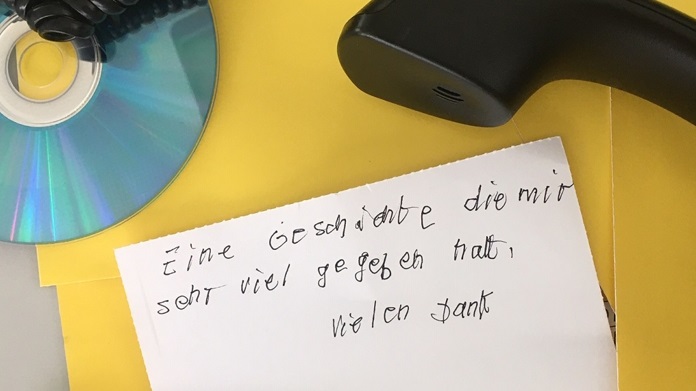 Eine Geschichte die mir
sehr viel gegeben hatt,
vielen Dank